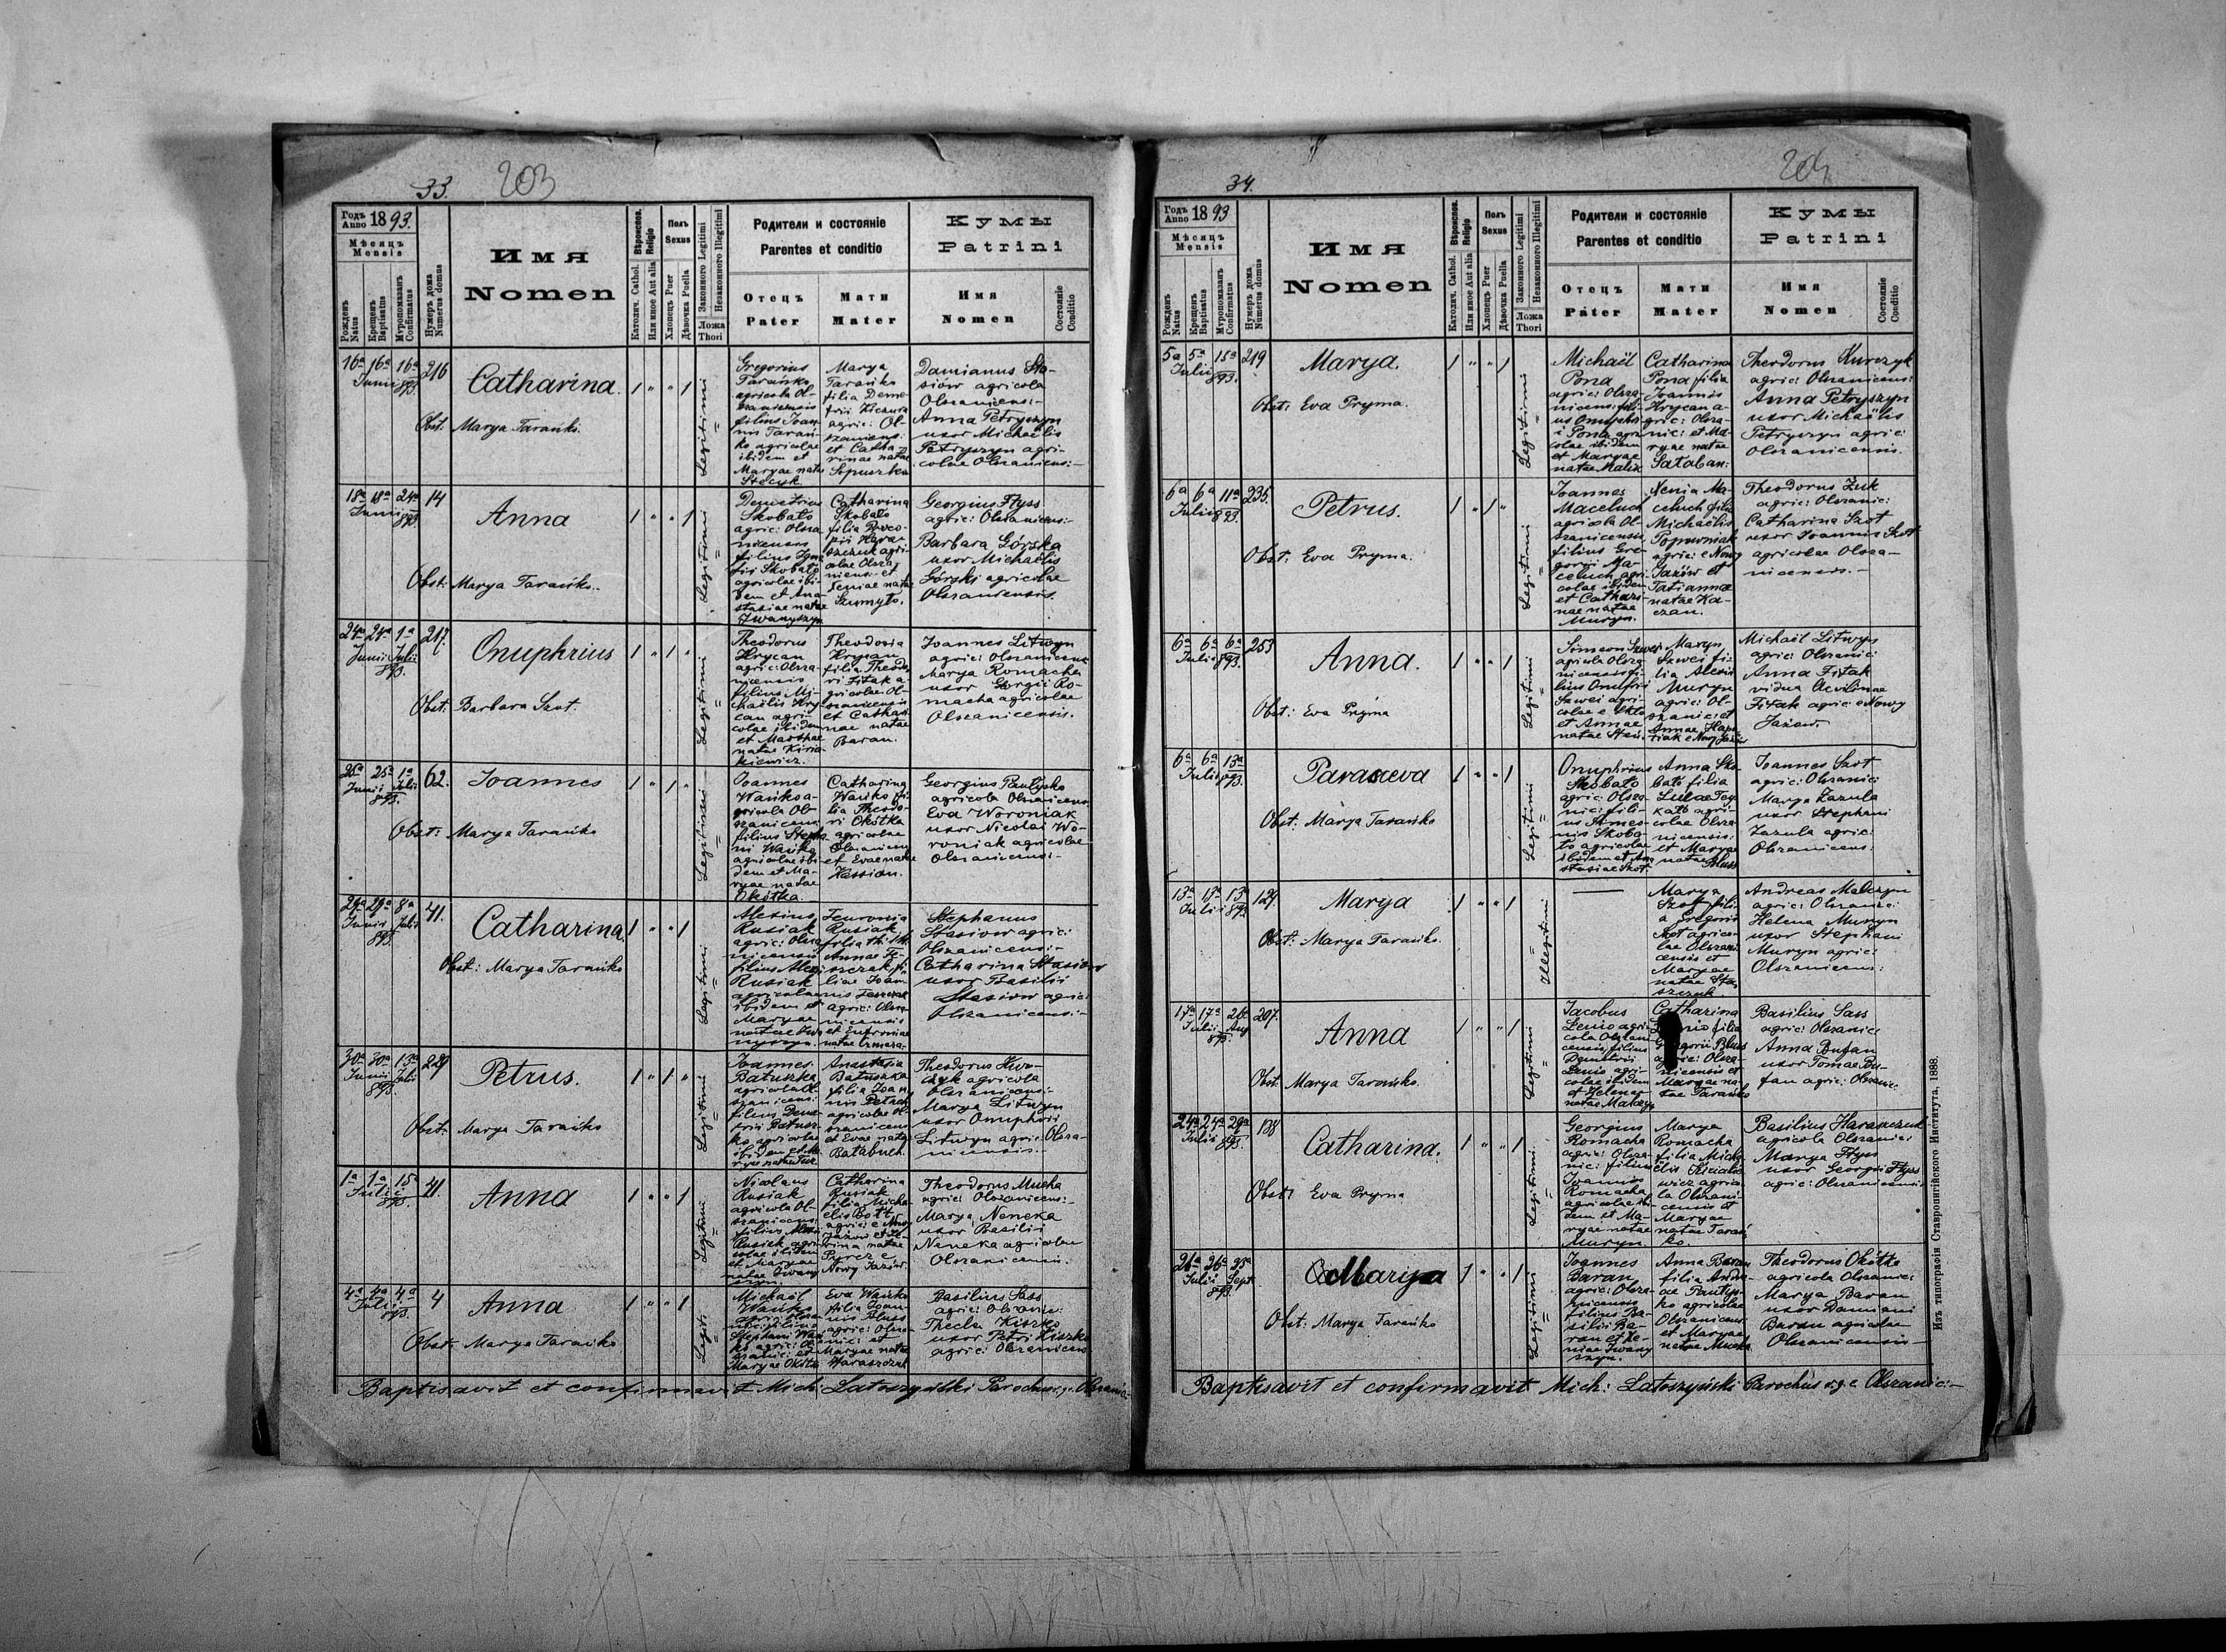 33.
203
Годъ
Anno 1893.
Мѣсяцъ
Mensis
Рожденъ
Natus
Крещенъ
Baptisatus
Мѵропомазанъ
Confirmatus
Нумеръ дома
Numerus domus
Имя
Nomen
Вѣроиспов.
Religio
Католич. Cathol.
Или иное Aut alia
Полъ
Sexus
Хлопецъ Puer
Дѣвочка Puella
Законного Legitimi
Незаконного Illegitimi
Ложа
Thori
Родители и состояніе
Parentes et conditio
Отецъ
Pater
Мати
Mater
Кумы
Patrini
Имя
Nomen
Состояніе
Conditio
16a 16a 16a
Junii 893.
216
Catharina.
Obst. Marya Tarańko
Legitimi
Gregorius
Tarańko
agricola Ol-
szanicensis
filius Joan-
nis Tarań-
ko agricolae
ibidem et
Maryae natae
Stecyk
Marya
Tarańko
filia Deme-
trii
agric: Ol-
szanicens:
et Catha-
rinae natae
Damianus Sta-
siów agricola
Olszanicens:-
Anna Petryszyn
uxor Michaëlis
Petryszyn agri-
colae Olszanicens:-
18a 18a 24a
Junii 893.
14
Anna
Obst: Marya Tarańko.
Legitimi
Demetrius
Skobało
agric: Olsza
nicensis
filius
Skobało
agricolae ibi-
dem et Ana-
stasiae natae
Iwanyszyn
Catharina
Skobało
filia Proco-
pii Hara-
szczuk agri-
colae Olsza
nicens: et
natae
Szumyło.
Georgius Hyss
agric: Olszanicens:-
Barbara Górska
uxor Michaëlis
Górski agricolae
Olszanicensis.
24a 24a 1a
Junii Julii
893.
217.
Onuphrius
Obst: Barbara Szot.
Legitimi
Theodorus
Hrycan
agric: Olsza-
nicensis
filius Mi-
chaëlis Hry-
can agri-
colae ibidem
et Marthae
natae Kiria-
kiewicz.
Theodosia
Hrycan
filia Theodo-
ri Fitak a-
gricolae Ol-
szanicensis
et Cathari-
nae natae
Baran.
Joannes Litwyn
agric: Olszanicens
Marya Romacha
uxor Georgii Ro-
macha agricolae
Olszanicensis.
25a 25a 1a
Junii Julii
893.
62.
Joannes
Obst: Marya Tarańko
Legitimi
Joannes
Wańko a-
gricola Ol-
szanicens:
filius Stepha-
ni Wańko
agricolae ibi-
dem et Ma-
ryae natae
Okótka.
Catharina
Wańko fi-
lia Theodo-
ri Okótka
agricolae
Olszanicens
et Evae natae
Hassian.
Georgius Pautysko
agricola Olszanicens
Eva Woroniak
uxor Nicolai Wo-
roniak agricolae
Olszanicens:-
29a 29a 8a
Junii Julii
893.
41.
Catharina.
Obst: Marya Tarańko
Legitimi
Alexius
Rusiak
agric: Olsza
nicensis
filius
Rusiak
agricolae
ibidem et
Maryae
natae
Rusiak
Annae
agric: Olsza
nicensis
et
natae
Stephanus
Stasiow agric:
Olszanicens:-
Catharina Stasiow
uxor Basilii
Stasiow agric:
Olszanicens:-
30a 30a 13a
Junii Julii
893.
229
Petrus.
Obst: Marya Tarańko
Legitimi
Joannes
Batuszka
agricola Ol-
szanicens:
filius Deme-
trii
agricolae
ibidem et Ma-
ryae natae
Anastasia
Batuszka
filia Joan-
nis
agricolae Ol-
szanicens
et Evae natae
Batabuch.
Theodorus
agricola
Olszanicens:-
Marya Litwyn
uxor Onuphrii
Litwyn agric: Olsza-
nicensis.-
1a 1a 15a
Julii
893.
41.
Anna
Legitimi
Nicolaus
Rusiak
agricola Ol-
szanicens:
filius
Rusiak agri-
colae ibidem
et Maryae
natae Iwany-
szyn.
Catharina
Rusiak
filia Micha-
ëlis
agric: e Nowy
Jazów et
natae
e
Nowy Jazów.
Theodorus Mucha
agric: Olszanicens:-
Marya Neneka
uxor Basilii
Neneka agricolae
Olszanicensis.
4a 4a 4a
Julii
893.
4
Anna
Obst: Marya Tarańko
Legiti
Michaël
Wańko
agric: Olsza-
nic: filius
Stephani Wań-
ko agric: Ol-
szanic: et
Maryae Okótka
Eva Wańko
filia Joan-
nis Bluss
agric: Olsza-
nic: et
Maryae natae
Haraszczuk
Basilius Sass
agric: Olszanic:
Thecla Kiszko
uxor Petri Kiszko
agric: Olszanicens
Baptisavit et confirmavit Mich: Latoszyński Parochus r.g.c. Olszanic:-
34.
204
Годъ
Anno 1893
Мѣсяцъ
Mensis
Рожденъ
Natus
Крещенъ
Baptisatus
Мѵропомазанъ
Confirmatus
Нумеръ дома
Numerus domus
Имя
Nomen
Вѣроиспов.
Religio
Католич. Cathol.
Или иное Aut alia
Полъ
Sexus
Хлопецъ Puer
Дѣвочка Puella
Законного Legitimi
Незаконного Illegitimi
Ложа
Thori
Родители и состояніе
Parentes et conditio
Отецъ
Pater
Мати
Mater
Кумы
Patrini
Имя
Nomen
Состояніе
Conditio
5a 5a 15a
Julii 893.
219
Marya.
Obst: Eva Pryma.
Legitimi
Michaël
Pona
agric: Olsza-
nicens: fili-
us Onuphri-
i Pona agri-
colae ibidem
et Maryae
natae
Catharina
Pona filia
Joannis
Hrycan a-
gric: Olsza-
nic: et Ma-
ryae natae
Sałaban:
Theodorus Kurczyk
agric: Olszanicens:
Anna Petryszyn
uxor Michaëlis
Petryszyn agric:
Olszanicensis.
6a 6a 11a
Julii 893.
235.
Petrus.
Obst: Eva Pryma.
Legitimi
Joannes
Maceluch
agricola Ol-
szanicensis
filius Gre-
gorii Ma-
celuch agri-
colae ibidem
et Cathari-
nae natae
Muryn.
Xenia Ma-
celuch filia
Michaëlis
agric: e Nowy
Jazów et
Tatiannae
natae Ka-
czan.
Theodorus Żuk
agric: Olszanic:
Catharina Szot
uxor Joannis Szot
agricolae Olsza-
nicensis.-
6a 6a 6a
Julii 893.
253
Anna.
Obst: Eva Pryma
Legitimi
Simeon Szwei
agricola Olsza-
nicensis fi-
lius Onufrii
Szwei agri-
colae e
et Annae
natae
Marya
Szwei fi-
lia Alexii
Muryn
agric: Ol-
szanic: et
Annae
e Nowy Jazów
Michaël Litwyn
agric: Olszanic:
Anna Fitak
vidua
Fitak agric: e Nowy
Jazow
6a 6a 13a
Julii 893.
Parasceva
Obst: Marya Tarańko
Legitimi
Onuphrius
Skobało
agric: Olsza-
nic: fili-
us
Skoba-
ło agricolae
ibidem et Ana
stasiae Szot.
Anna Sko-
bało filia
Lucae
agri-
colae Olsza-
nicensis:
et Maryae
natae Bluss
Joannes Szot
agric: Olszanic:
Marya Zazula
uxor Stephani
Zazula agric:
Olszanicens:
13a 13a 13a
Julii 893.
127.
Marya
Obst: Marya Tarańko.
Illegitimi
Marya
Szot fili-
a Gregorii
Szot agrico-
lae Olszani-
censis et
Maryae
natae
Andreas Malczyn
agric: Olszanic:
Helena Muryn
uxor Stephani
Muryn agric:
Olszanicens:
17a 17a 26
Julii Aug
893.
207.
Anna
Obst: Marya Tarańko.
Legitimi
Jacobus
Lenio agri-
cola Olszani-
censis filius
Demetrii
Lenio agri-
colae ibidem
et Helenae
natae Malczyn
Catharina
filia
Gregorii Bluss
agric: Olsza-
nicensis et
Maryae na-
tae Tarańko
Basilius Sass
agric: Olszanic:
Anna Bufan
uxor Tomae Bu-
fan agric: Olszanic:
24a 24a 29a
Julii 893.
138
Catharina.
Obst: Eva Pryma
Legitimi
Georgius
Romacha
agric: Olsza-
nic: filius
Joannis
Romacha
agricolae ibi-
dem et Ma-
ryae natae
Muryn.
Marya
Romacha
filia Micha-
ëlis Kiriakie-
wicz agrico-
la Olszani-
censis et
Maryae
natae Tarań
ko.
Basilius Haraszczuk
agricola Olszanic:
Marya Hyss
uxor Georgii Hyss
agric: Olszanicensis
26a 26a 25a
Julii Sept.
893.
Marya
Obst: Marya Tarańko
Legitimi
Joannes
Baran
agric: Olsza-
nicensis
filius Ba-
silii Ba-
ran et Xe-
niae Iwany
szyn.
Anna Baran
filia Andre-
ae Pautys-
ko agricolae
Olszanicens
et Maryae
natae Mucha
Theodorus Okótka
agricola Olszanic:
Marya Baran
uxor Damiani
Baran agricolae
Olszanicensis-
Baptisavit et confirmavit Mich: Latoszyński Parochus r.g.c. Olszanic:-
Изъ типографіи Ставропигійского Института, 1888.